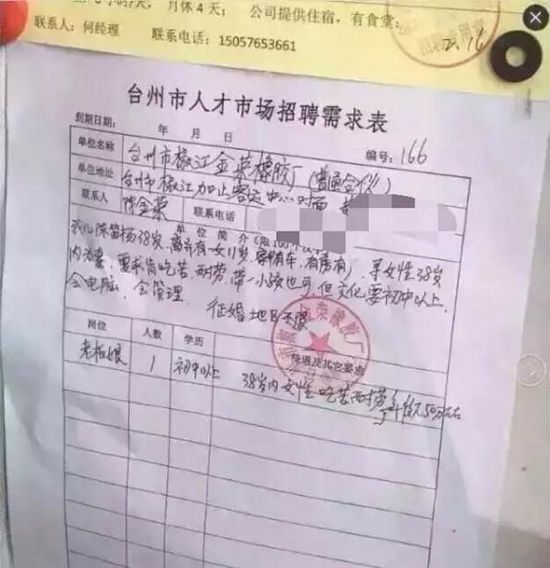 月休4天； 公司提供住宿，有食堂；
联系人：何经理 联系电话：15057653661
2.16
台州市人才市场招聘需求表
到期日期： 年 月 日 编号：166
单位名称 台州市椒江金荣橡胶厂（普通合伙）
单位地址 台州市椒江加止客运中心对面
联系人 陈金荣 联系电话
单位简介（限100个汉字）
38岁，离异有一女11岁，家中有车，有房，寻女性38岁
内为妻，要求肯吃苦耐劳，带一小孩也可，但文化要初中以上，
会电脑，会管理。 征婚地区不限
岗位 人数 学历 待遇及其它要求
老板娘 1 初中以上 38岁内女性 吃苦耐劳 年收入50万左右